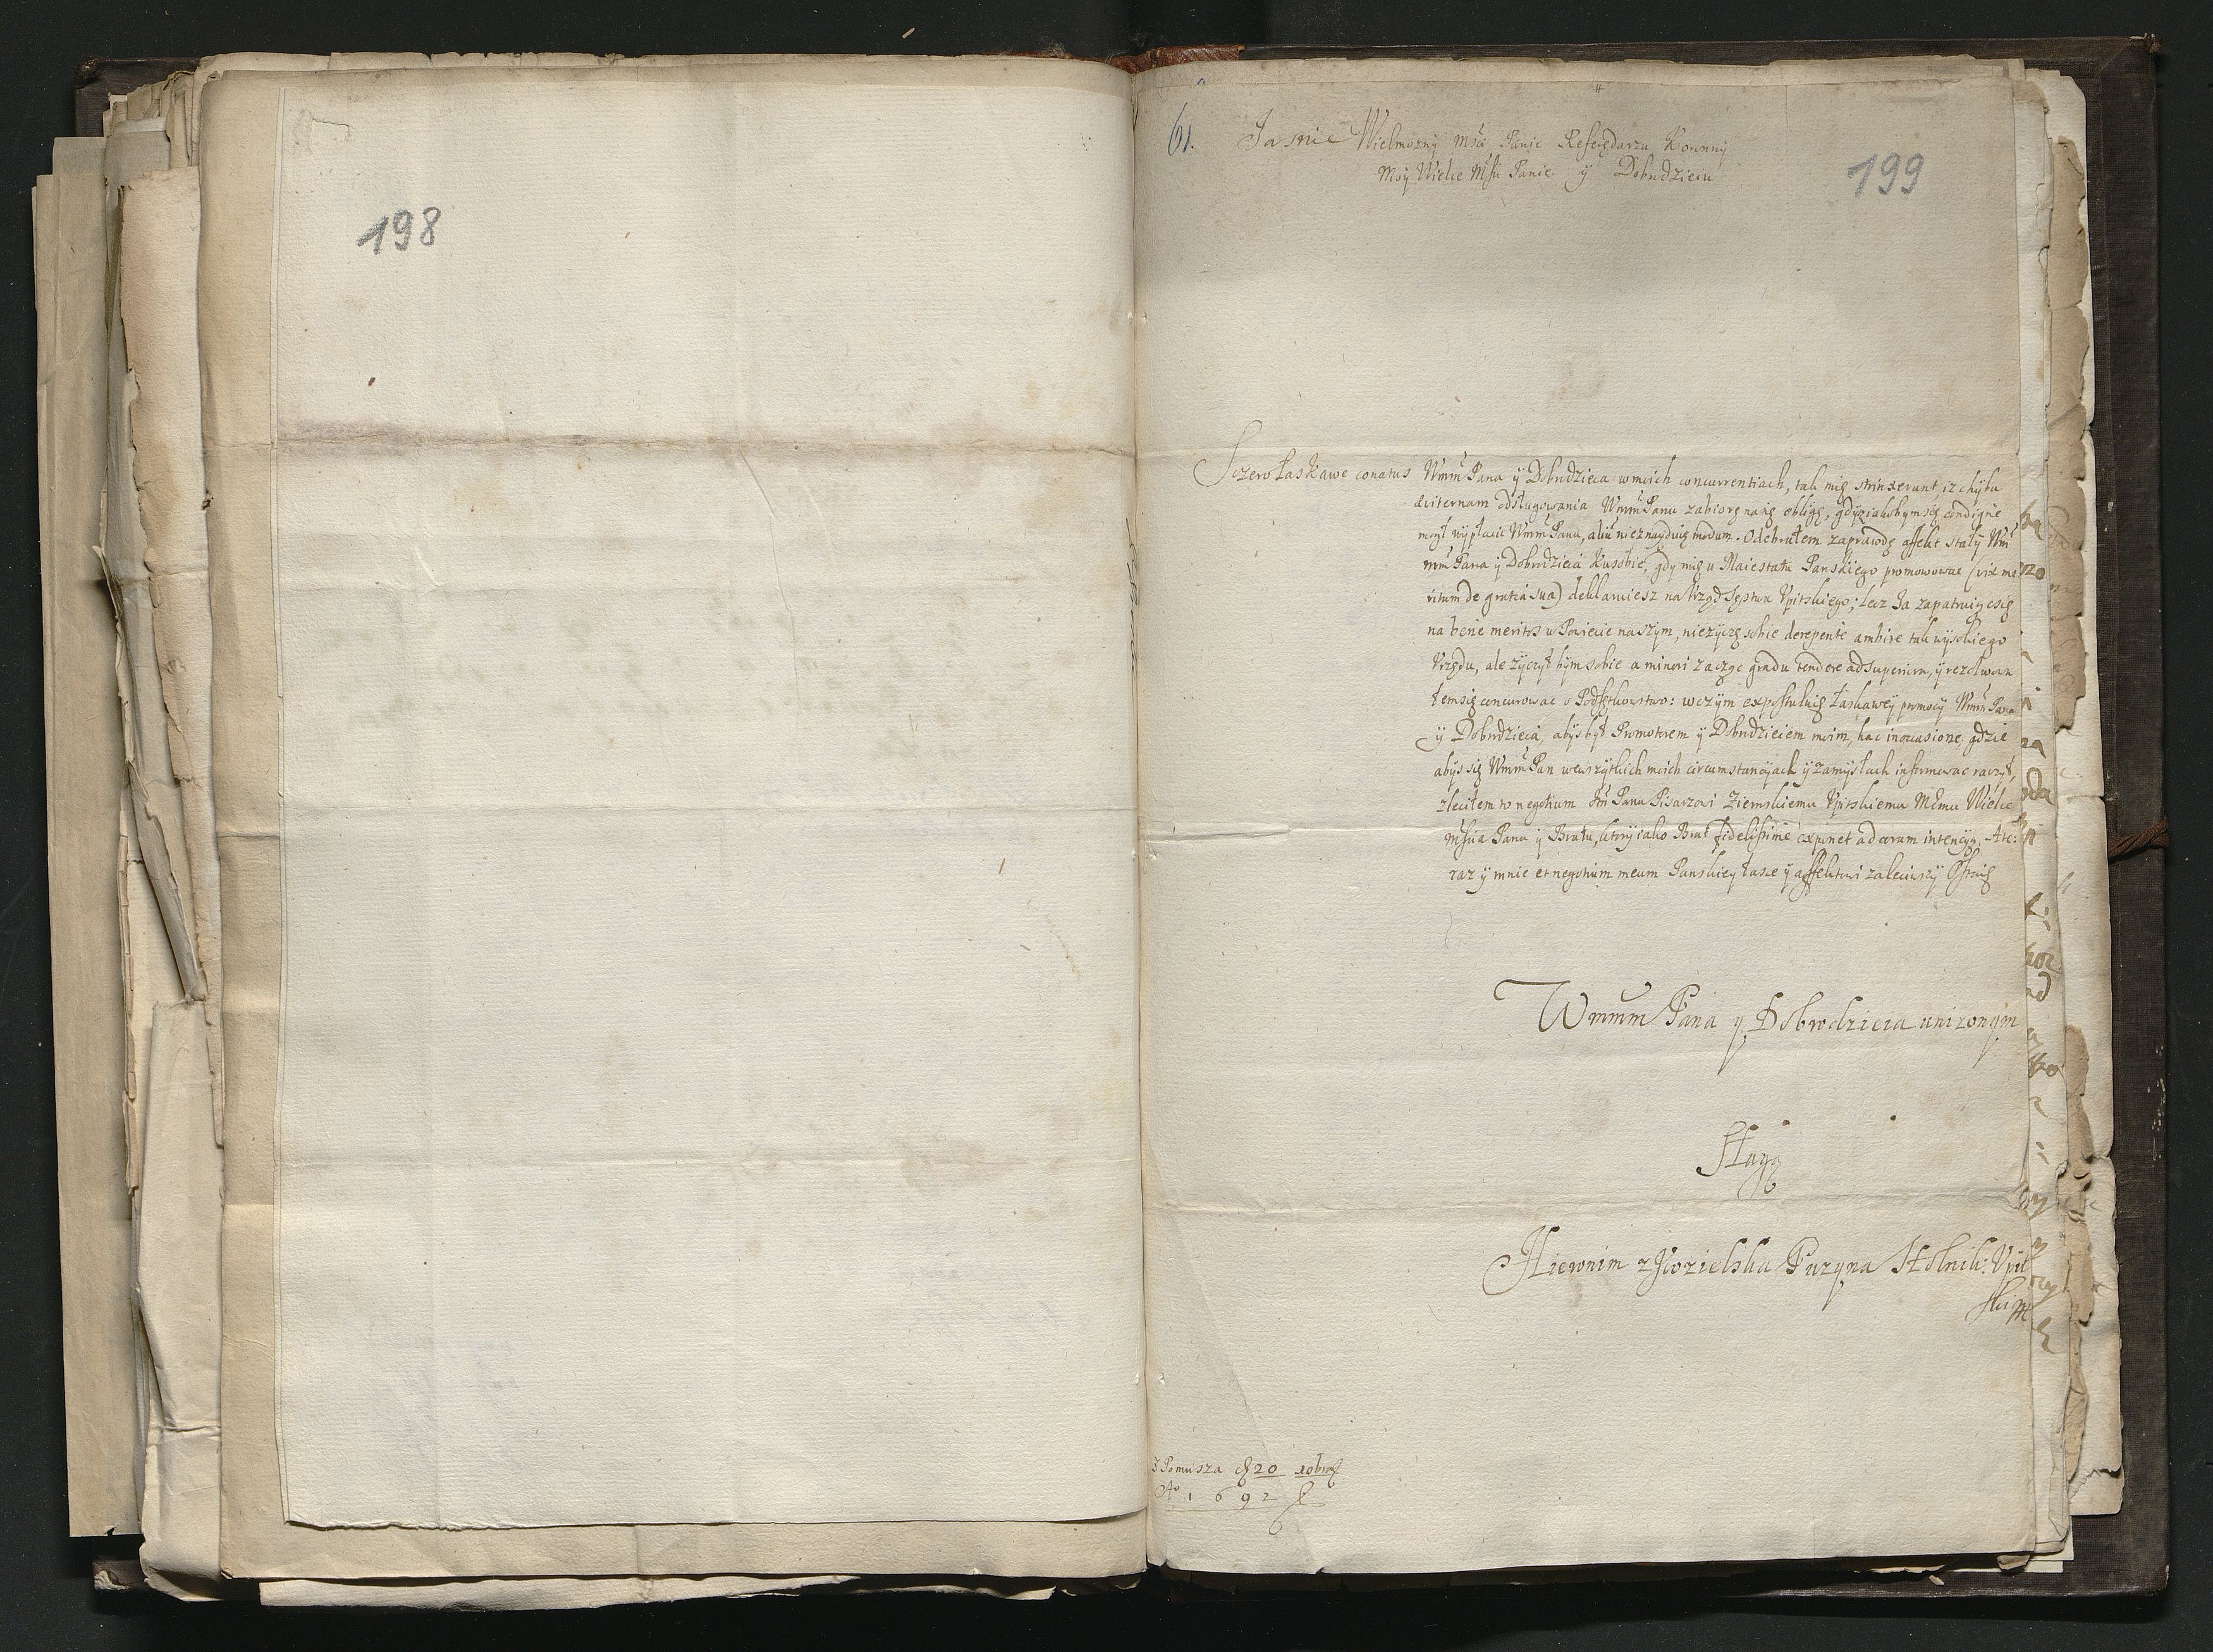 198
61.
199
Jasnie Wielmożny Msci Panie Referędarzu Koronny
Moy Wielce Msći Panie y Dobrodzieiu
Sczerołaskawe conatus Wmm Pana y Dobrodzieia w moich concurrentiach, tak mię strinxerunt, iz chyba
æviternam odsługowania WmmPanu zabiorę na się obligę, gdyz iakobym się condigne
mogł wypłacic WmmPanu, aliũ nieznayduię modum. Odebrałem zaprawdę affekt stały Wm
mm Pana y Dobrodzieia ku sobie, gdy mię u Maiestatu Panskiego promowowac (vix me
ritum de gratia sua) deklaruiesz na Vrząd Sęstwa Vpitskiego; lecz Ja zapatruiąc się
na bene meritos w Powiecie naszym, nie zyczę sobie derepente ambire tak wysokiego
Vrzędu, ale zyczył bym sobie a minori zacząc gradu tendere ad superiora, y rezolwowa
łem się concurowac o Podsęstkowstwo: w czym expostuluię łaskawey pomocy WmmPana
y Dobrodzieia, abys był Promotorem y Dobrodzieiem moim, hac in occasione, gdzie
abys się WmmPan we wszytkich moich circumstancyach y zamysłach informowac raczył,
zleciłem to negotium Jm Panu Pisarzowi Ziemskiemu Vpitskiemu Memu Wielce
Msciu Panu y Bratu, ktory iako Brat fidelissime exponet ad coram intencyą. A te:
raz y mnie et negotium meum Panskiey łasce y affektowi zaleciwszy
Wmmm Pana y Dobrodzieia unizonym
Sługą
Hieronim z Kozielska Puzyna Stolnik: Vpit
ski m
Z Pomusza 20 10bris
Aº 1692